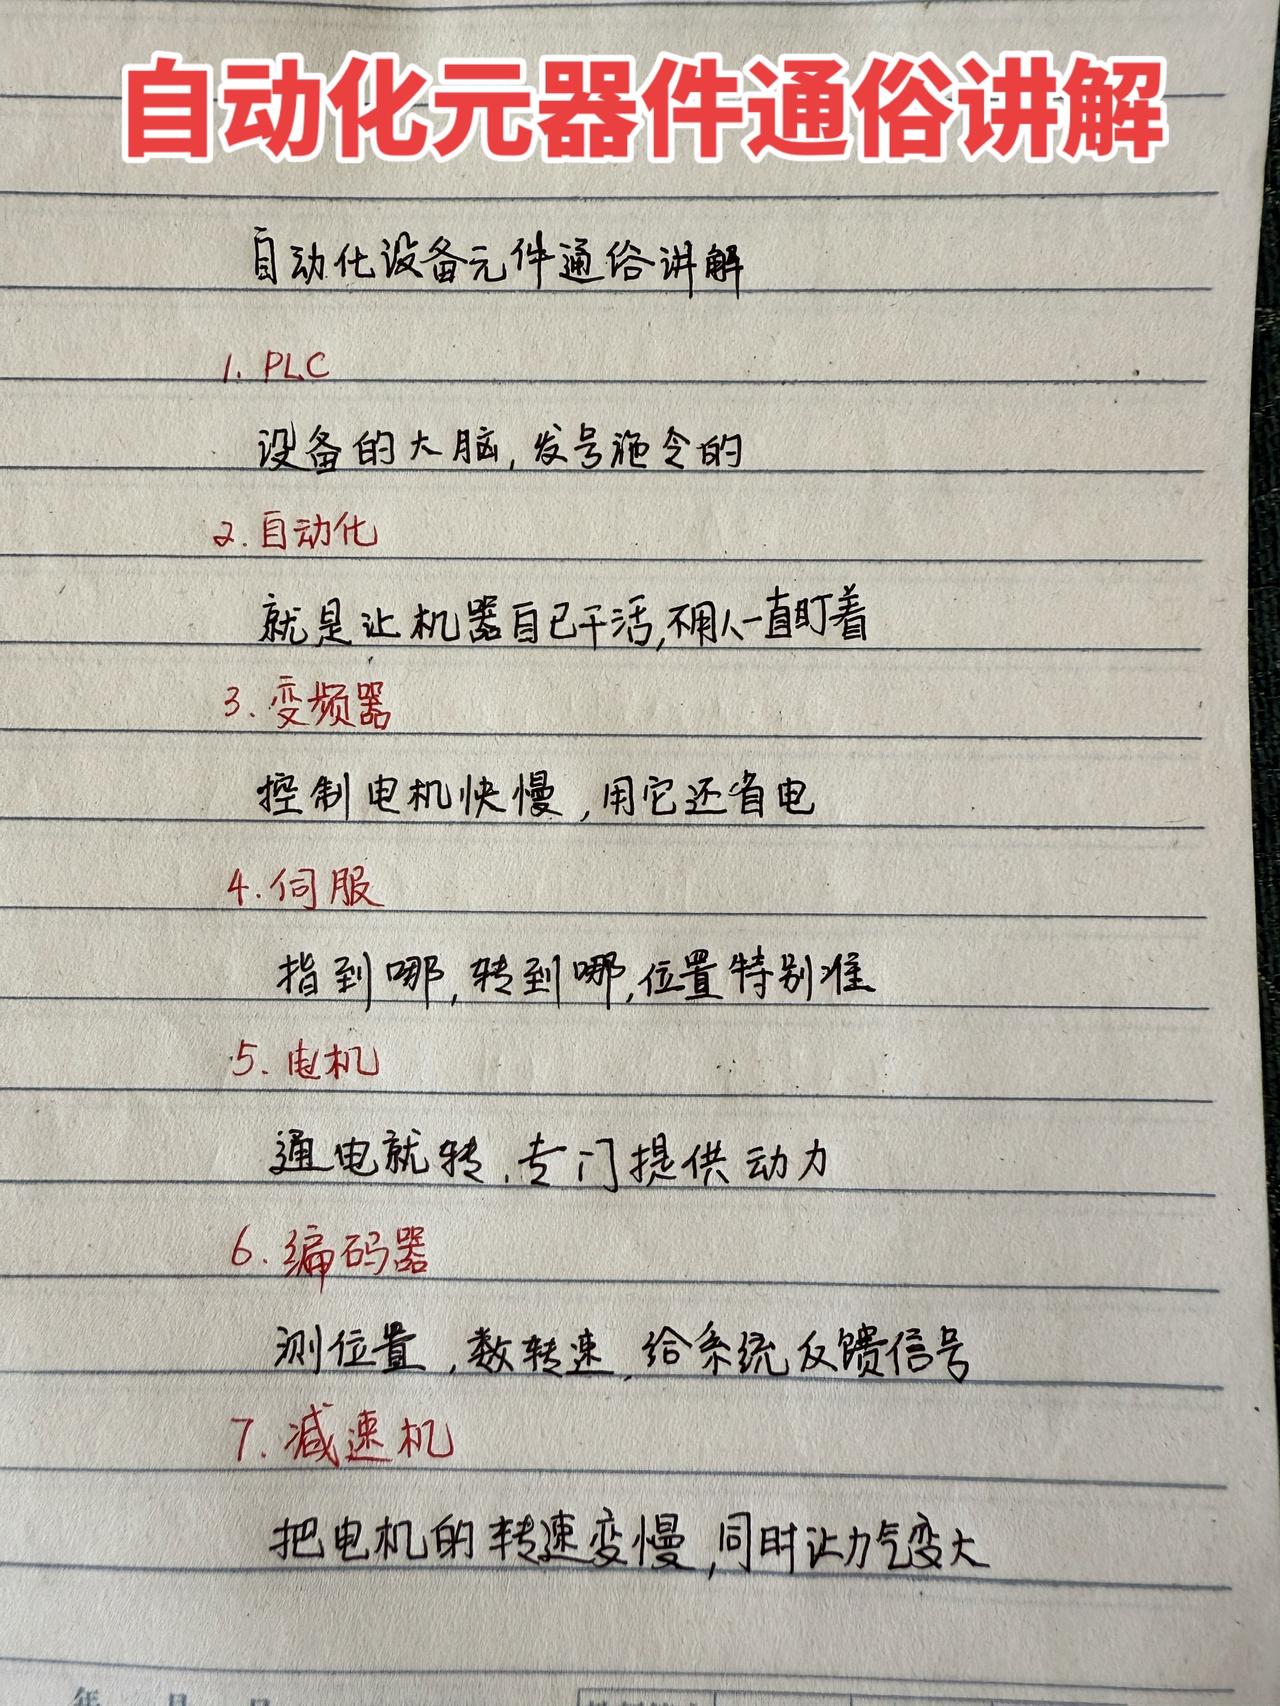 自动化元器件通俗讲解
自动化设备元件通俗讲解
1. PLC
设备的大脑,发号施令的
2.自动化
就是让机器自己干活,不用人一直盯着
3.变频器
控制电机快慢,用它还省电
4.伺服
指到哪,转到哪,位置特别准
5.电机
通电就转,专门提供动力
6.编码器
测位置,数转速,给系统反馈信号
7.减速机
把电机的转速变慢,同时让力气变大
年 月 日